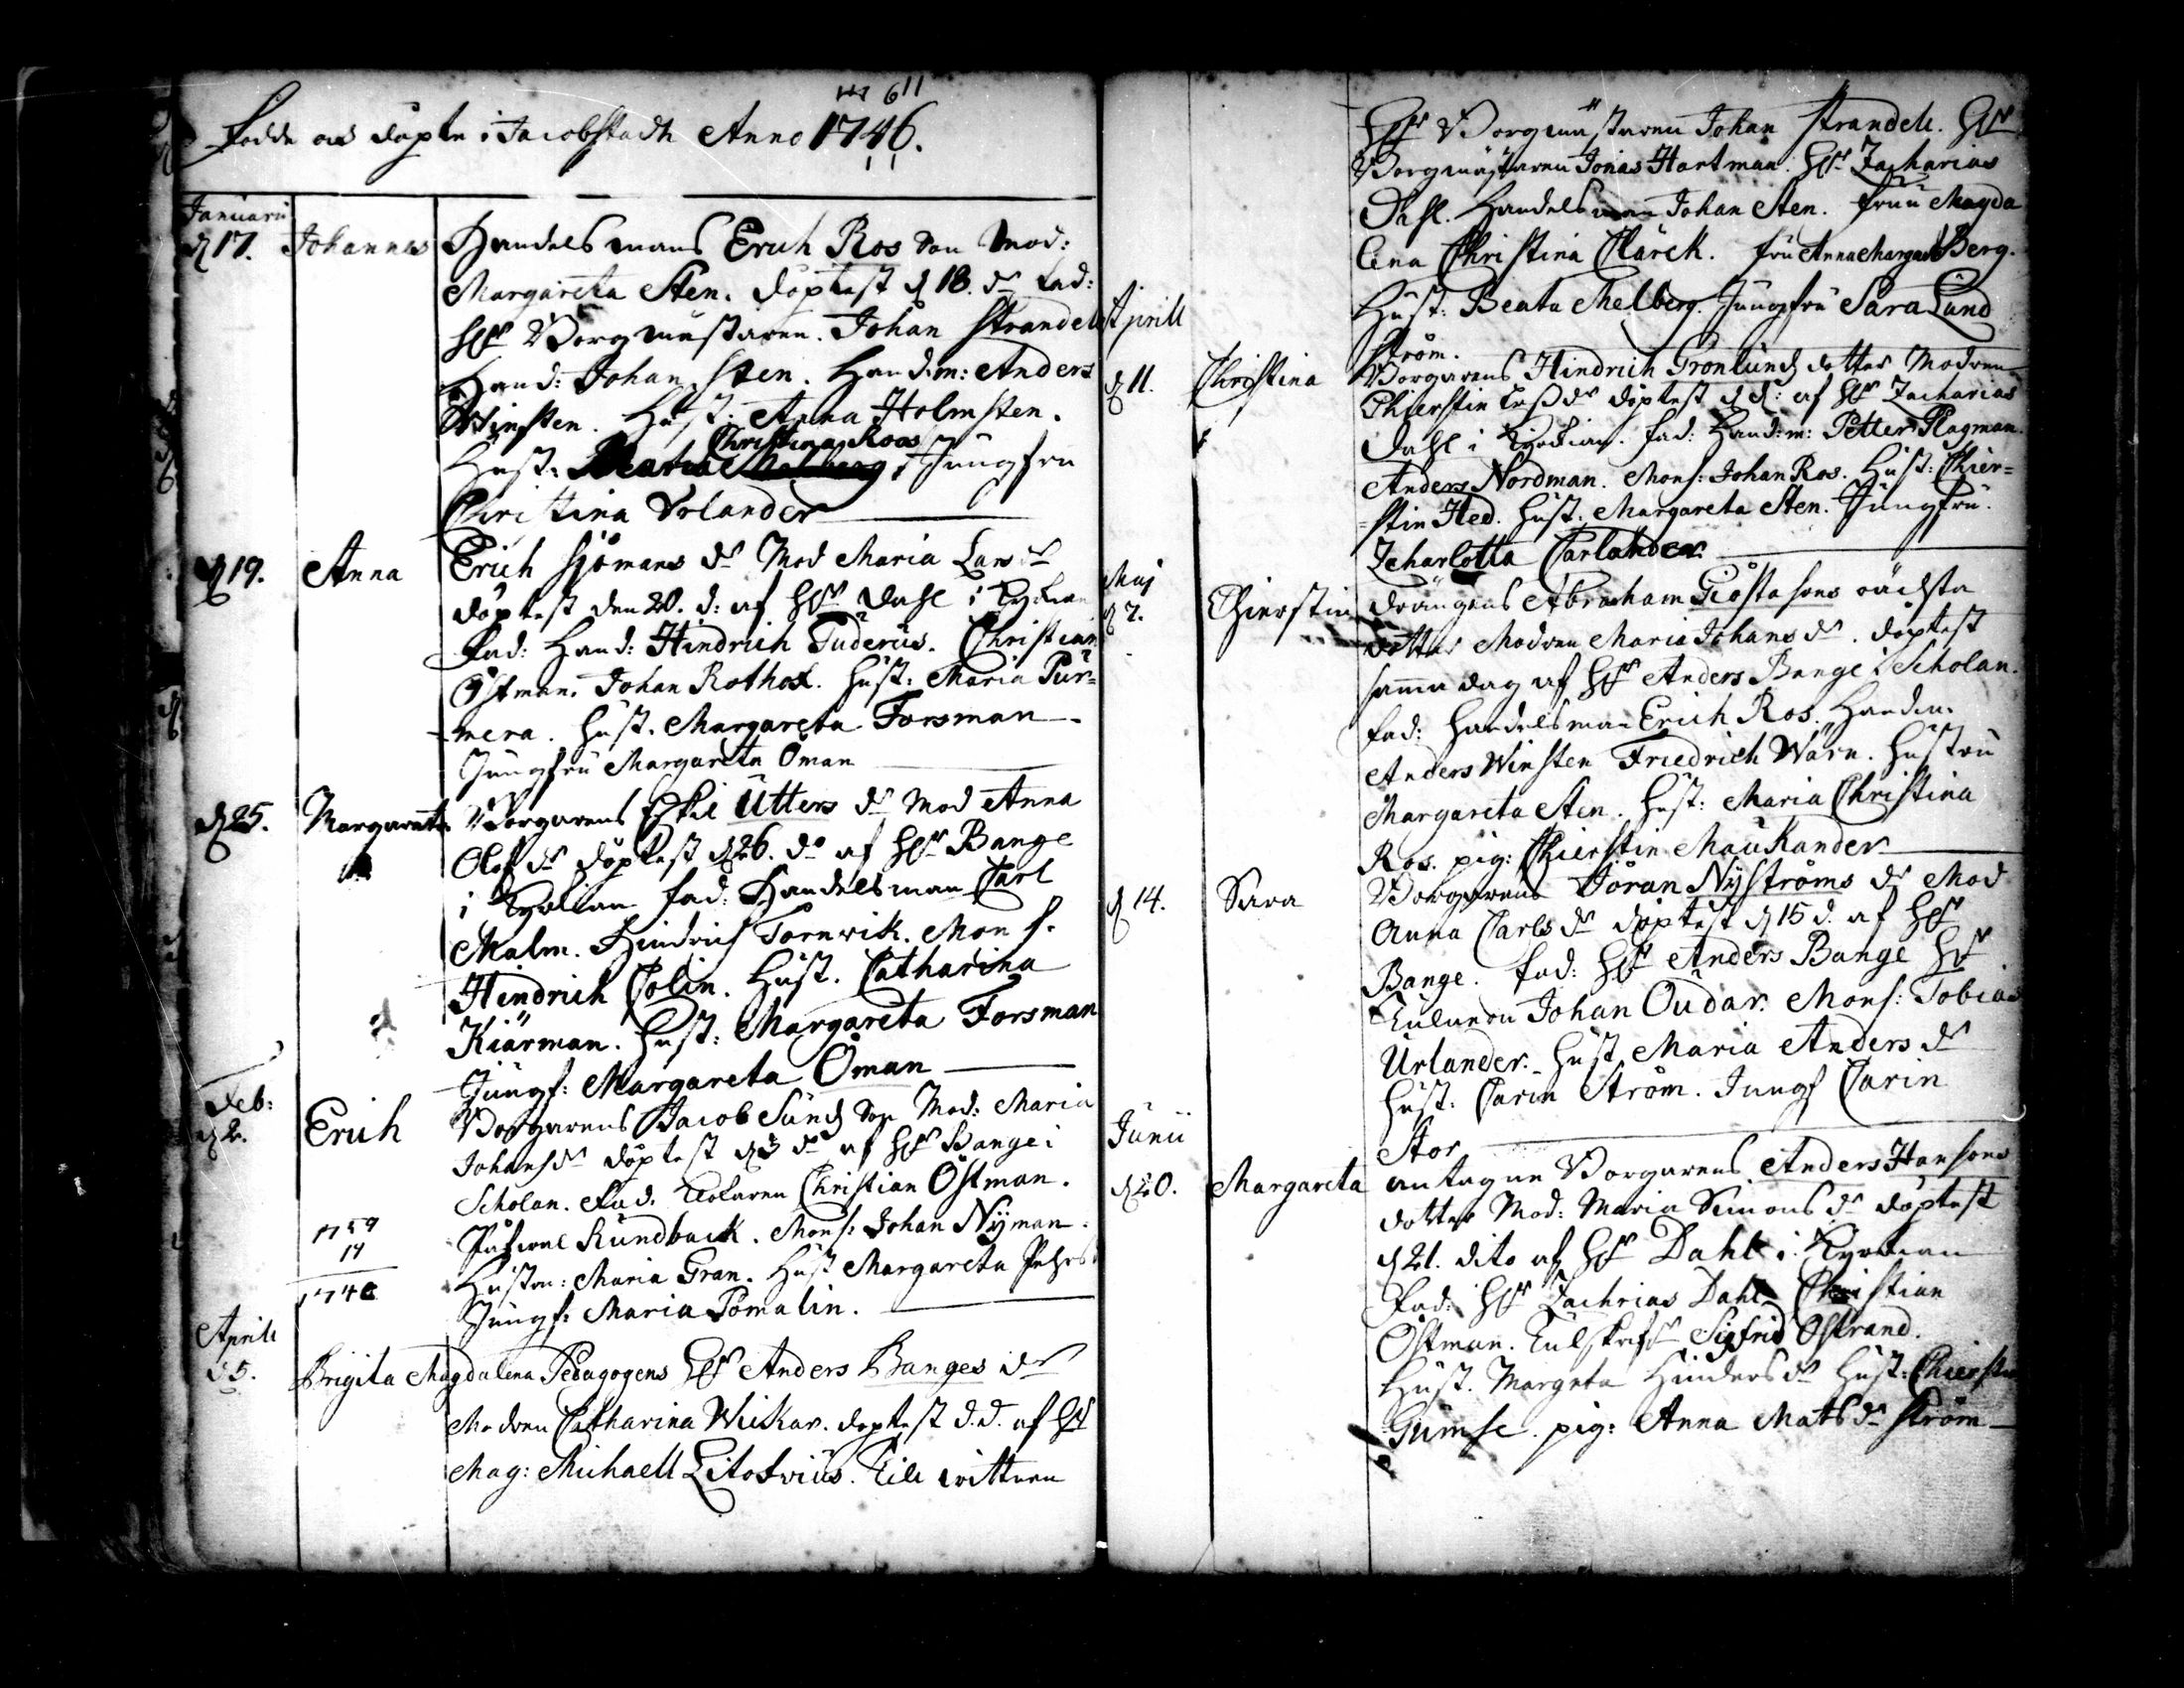 611
Födde och döpte i Jacobstadh Anno 1746.
Januarii
d 17. Johannes Handelsmans Erich Ros Son Mod:
Margareta Sten. döptest d 18. do fad:
Hr Borgmästaren. Johan Strandell
Hand: Johan Sten. Hand:m: Anders
Winsten. Hust: Anna Holmsten.
Christina Roos
Hust: Jungfru
Christina Volander
d 19. Anna Erich Sjömans dr Mod Maria Larsdr
döptest den 20. d: af Hr Dahl i Kyrkian
fad: Hand: Hindrich Tuderus. Christian
Östman. Johan Rothof. Hust: Maria Pur=
mera. Hust. Margareta Forsman
Jungfru Margareta Öman
d 25. Margareta Borgarens Eskil Utters dr Mod Anna
Olofsdr döptest d 26. do af Hr Bange
i Kyrkian fad: Handelsman Carl
Malm. Hindrich Tornwik. Mons.
Hindrich Colin. Hust. Catharina
Kiärman. Hust: Margareta Forsman
Jungf: Margareta Öman
Feb:
d 2. Erich Borgarens Jacob Sund Son Mod: Maria
Johansdr döptest d 3 do af Hr Bange i
Scholan. Fad. Christian Östman.
Rundback. Mons: Johan Nyman.
Hustru: Maria Gran. Hust Margareta Pehrsd
Jungf: Maria Pomalin.
1759
14
1746
Aprill
d 5. Brigita Magdalena Pedagogens Hr Anders Banges dr
Modren Catharina Wickar. döptest d.d. af Hr
Mag: Michaell Litovius. Till wittnen
Hr Borgmästaren Johan Strandell. Hr
Borgmästaren Jonas Hartman. Hr Zacharias
Dahl. Handelsman Johan Sten. fruu Magda
lena Christina Clärck. fru Anna Margaret Berg.
Hust: Beata Melberg. Jungfru Sara Lund
ström.
Aprill
d 11. Christina Borgarens Hindrich Gronlund dotter Modren
Chierstin döptest d d: af Hr Zacharias
Dahl i Kyrkian. fad: Hand:m: Petter Plagman.
Anders Nordman. Mons: Johan Ros. Hust: Chier=
=stin Hed. Hust. Margareta Sten. Jungfru.
Zcharlotta Carlander
Maj
d 7. Chierstin drängens Abraham Giöstasons oächta
dotter Modren Maria Johansdr. döptest
samma dag af Hr Anders Bange i Scholan.
fad: Handelsman Erich Ros. Handm.
Anders Winsten Friedrich Wärn. Hustru
Margareta Sten. Hust: Maria Christina
Ros. pig: Chierstin Maukander
d 14. Sara Borgarens Jöran Nyströms dr Mod
Anna Carlsdr döptest d 15 d. af Hr
Bange. fad: Hr Anders Bange Hr
Johan Oudar. Mons: Tobias
Urlander. Hust Maria Andersdr
Hust: Carin Ström. Jungf Carin
Stor
Junii
d 20. Margareta antagne Borgarens Anders Hansons
dotter Mod: Maria Simonsdr döptest
d 21. dito af Hr Dahl i Kyrkian
Fad: Hr Zachrias Dahl Christian
Östman. Sigfrid Östrand.
Hust. Margreta Hindersdr Hust: Chierstin
Gumse. pig: Anna Matsdr Ström